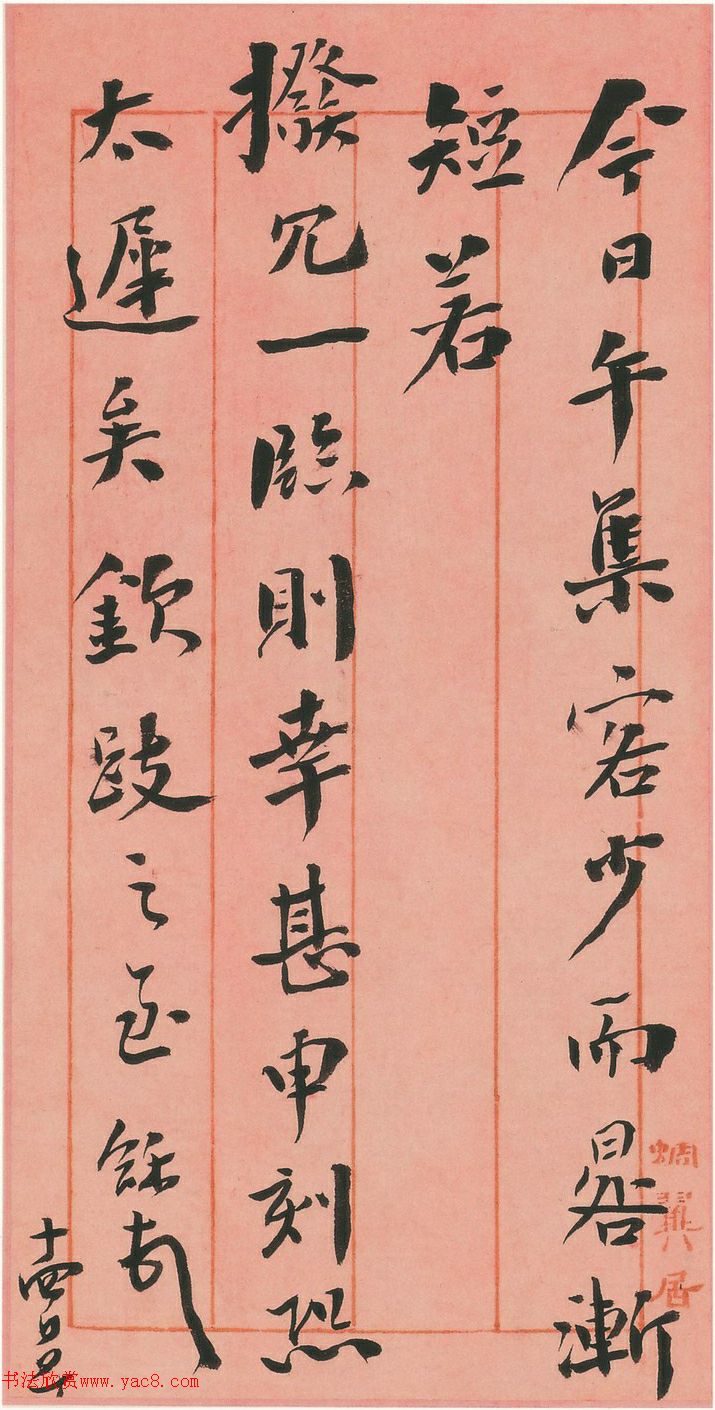 蜩翼居
今日午集客少而晷漸
短若
撥冗一臨則幸甚申刻恐
太遲矣欽跂之至
十四日
书法欣赏www.yac8.com